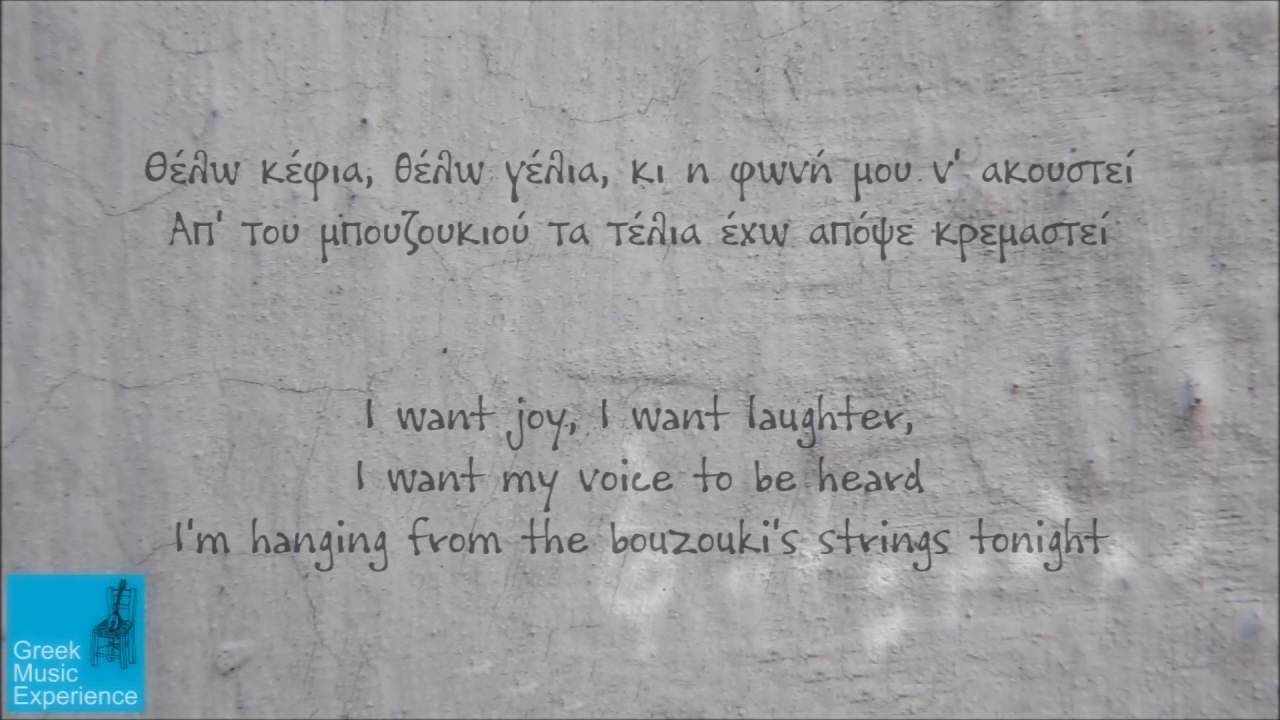 Θέλω κέφια, θέλω γέλια, κι η φωνή μου ν' ακουστεί
Απ' του μπουζουκιού τα τέλια έχω απόψε κρεμαστεί
I want joy, I want laughter,
I want my voice to be heard
I'm hanging from the bouzouki's strings tonight
Greek
Music
Experience